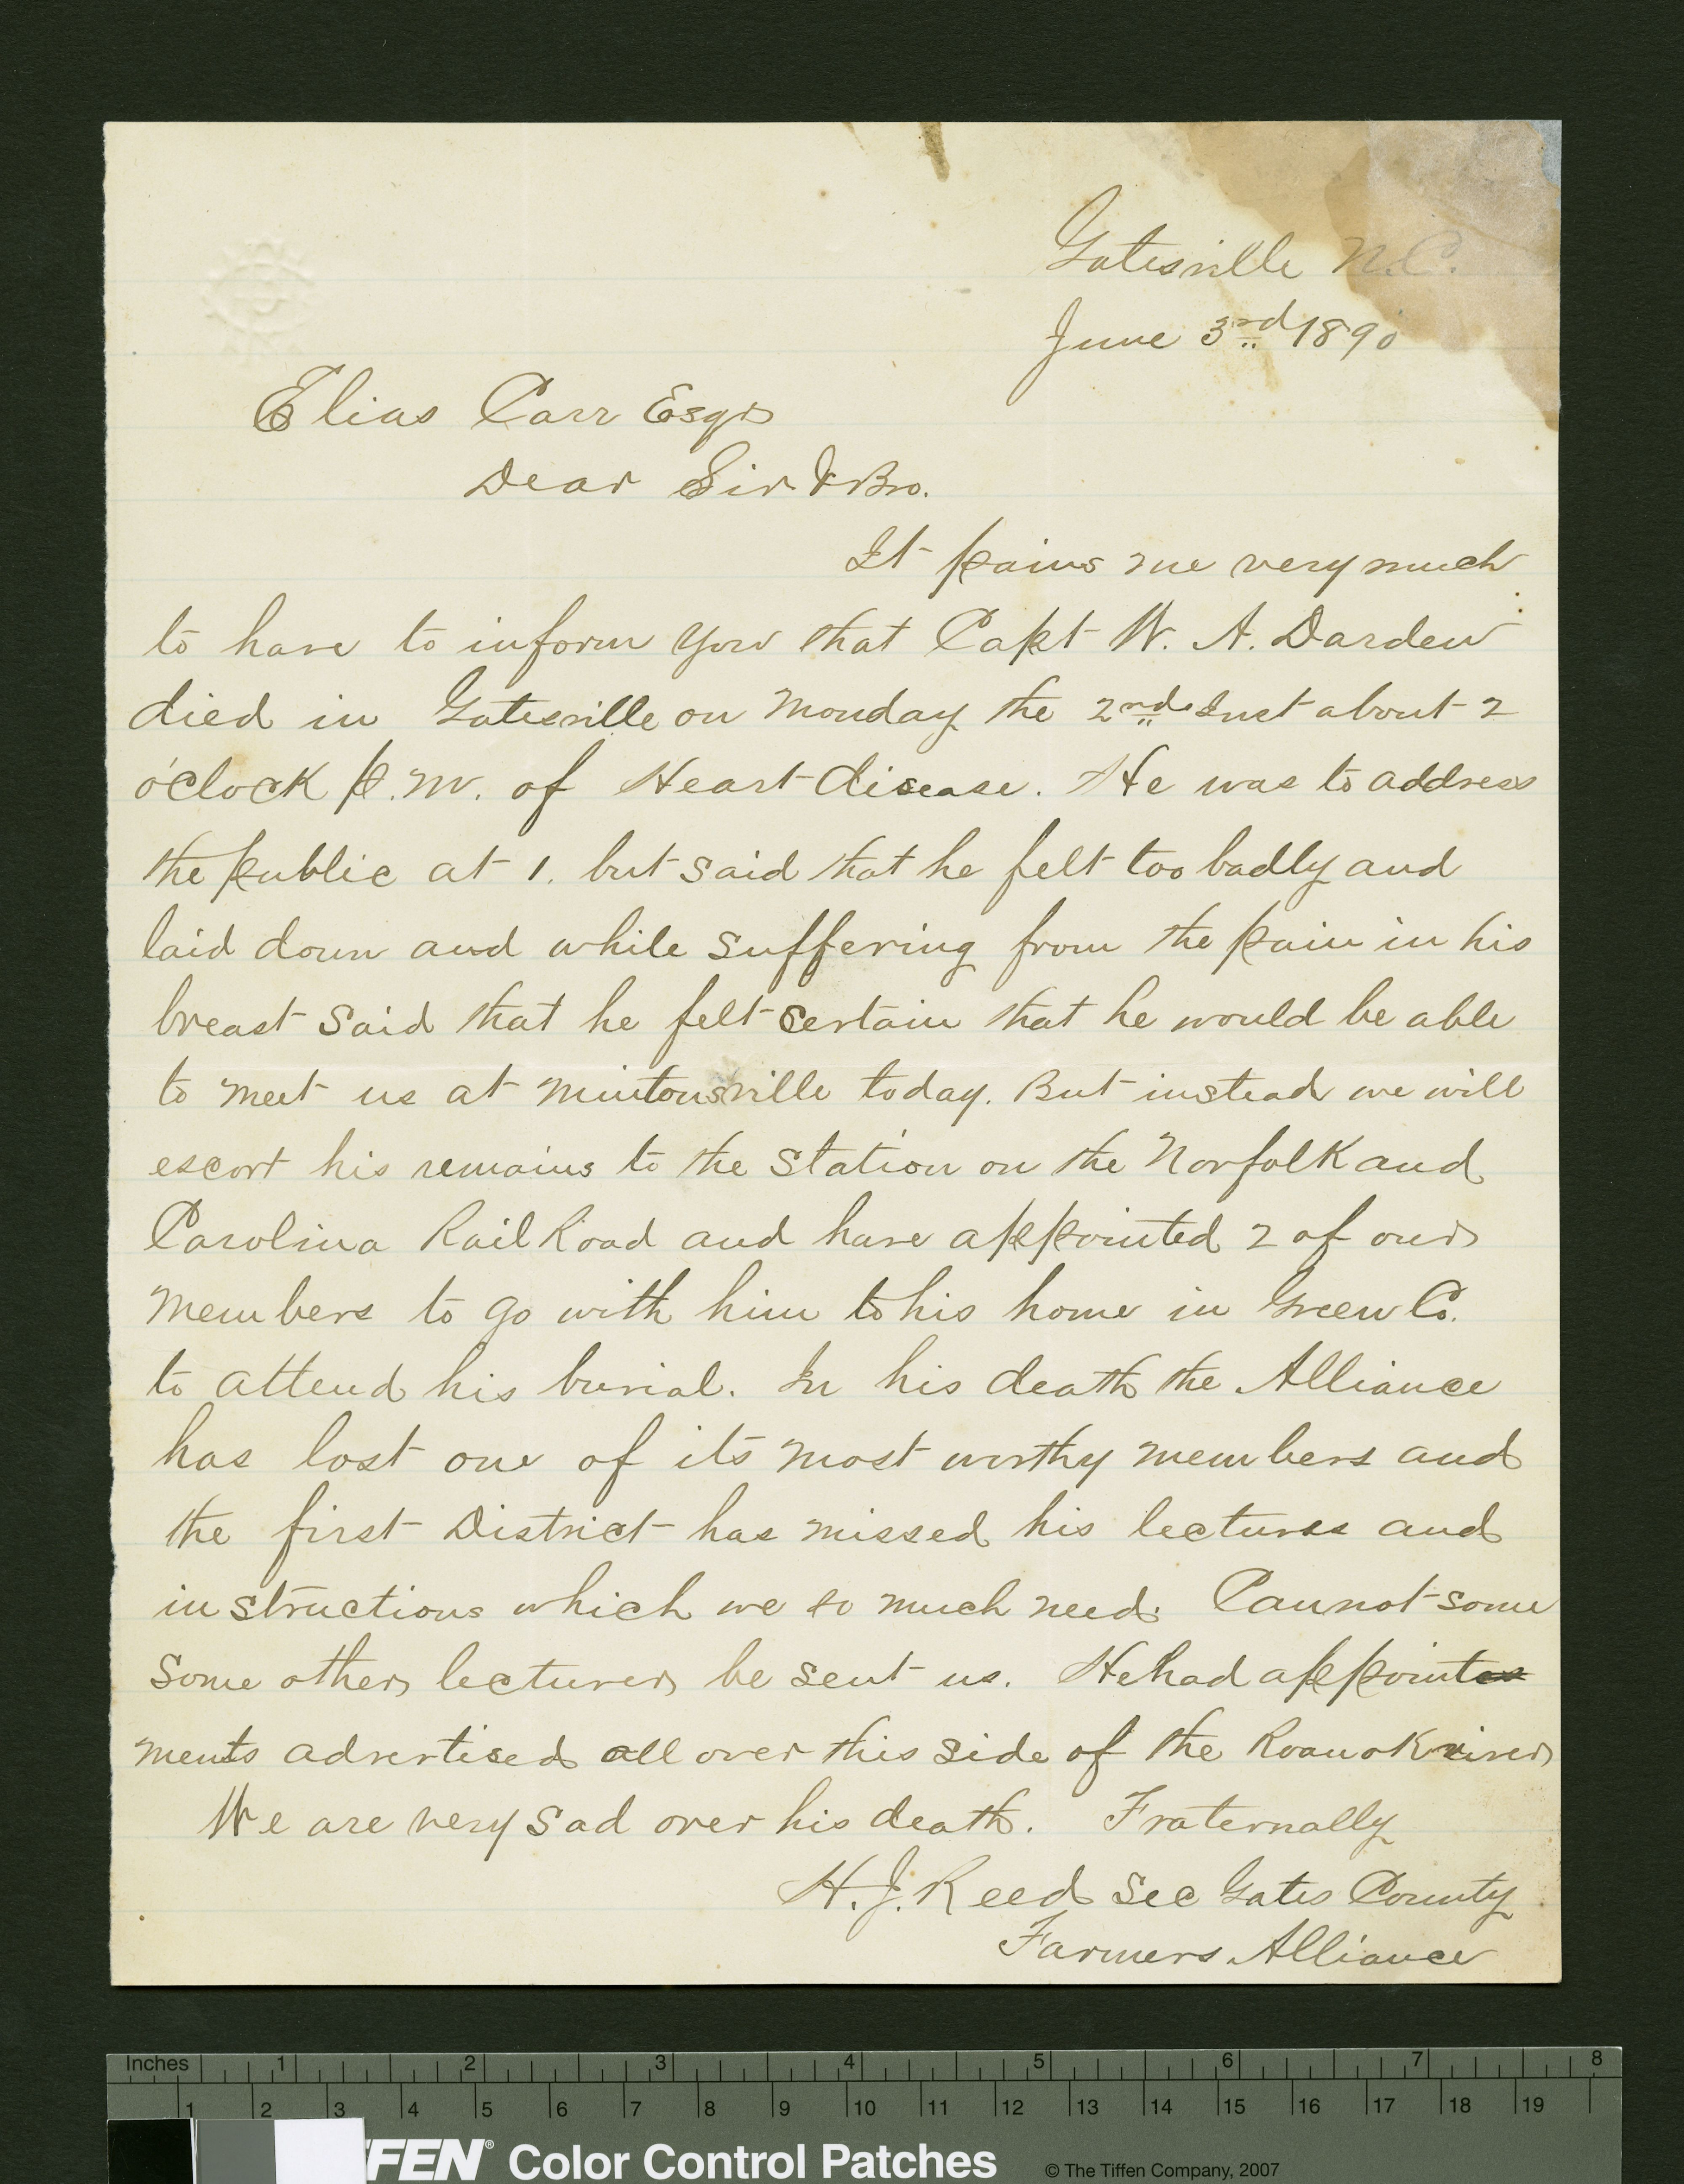 Gatesville N.C.
June 3rd 1890
Elias Carr Esqr
Dear Sir & Bro.
It pains me very much
to have to inform you that Capt W. A. Darden
died in Gatesville on Monday the 2nd Inst about 2
o'clock p.m. of Heart disease. He was to address
the public at 1. but said that he felt too badly and
laid down and while suffering from the pain in his
breast said that he felt certain that he would be able
to meet us at Mintonsville today. But instead we will
escort his remains to the station on the Norfolk and
Carolina Rail Road and have appointed 2 of our
members to go with him to his home in Green Co.
to attend his burial. In his death the Alliance
has lost one of its most worthy members and
the first District has missed his lectures and
instructions which we so much need. Cannot some
some other lecturer be sent us. He had appoint
ments advertised all over this side of the Roanok river
We are very sad over his death. Fraternally
H. J. Reed Sec Gates County
Farmers Alliance
Inches 1 2 3 4 5 6 7 8
1 2 3 4 5 6 7 8 9 10 11 12 13 14 15 16 17 18 19
FFEN® Color Control Patches © The Tiffen Company, 2007